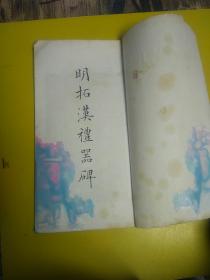 明拓漢禮器碑